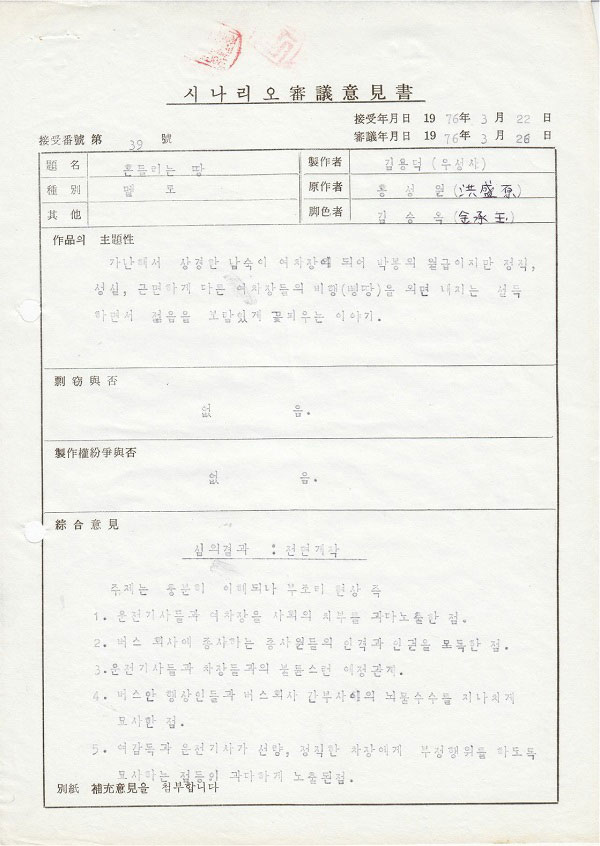 시나리오 審議意見書
接受年月日 19 76年 3 月 22 日
接受番號 第 39 號
審議年月日 19 76年 3 月 26 日
題名 흔들리는 땅
製作者 김용덕 (우성사)
種別 멜로
原作者 홍성원 (洪盛原)
其他
脚色者 김승옥 (金承玉)
作品의 主題性
가난해서 상경한 남숙이 여차장에 되어 박봉의 월급이지만 정직,
성실, 근면하게 다른 여차장들의 비행(삥땅)을 외면 내지는 설득
하면서 젊음을 보람있게 꽃피우는 이야기.
剽窃與否
없 음.
製作權紛爭與否
없 음.
綜合意見
심의결과 : 전면개작
주제는 충분히 이해되나 부조리 현상 즉
1. 운전기사들과 여차장을 사회의 치부를 과다노출한 점.
2. 버스 회사에 종사하는 종사원들의 인격과 인권을 모독한 점.
3. 운전기사들과 차장들과의 불륜스런 애정관계.
4. 버스안 행상인들과 버스회사 간부사이의 뇌물수수를 지나치게
묘사한 점.
5. 여감독과 운전기사가 선량, 정직한 차장에게 부정행위를 하도록
묘사하는 점등이 과다하게 노출된점.
別紙 補充意見을 첨부합니다